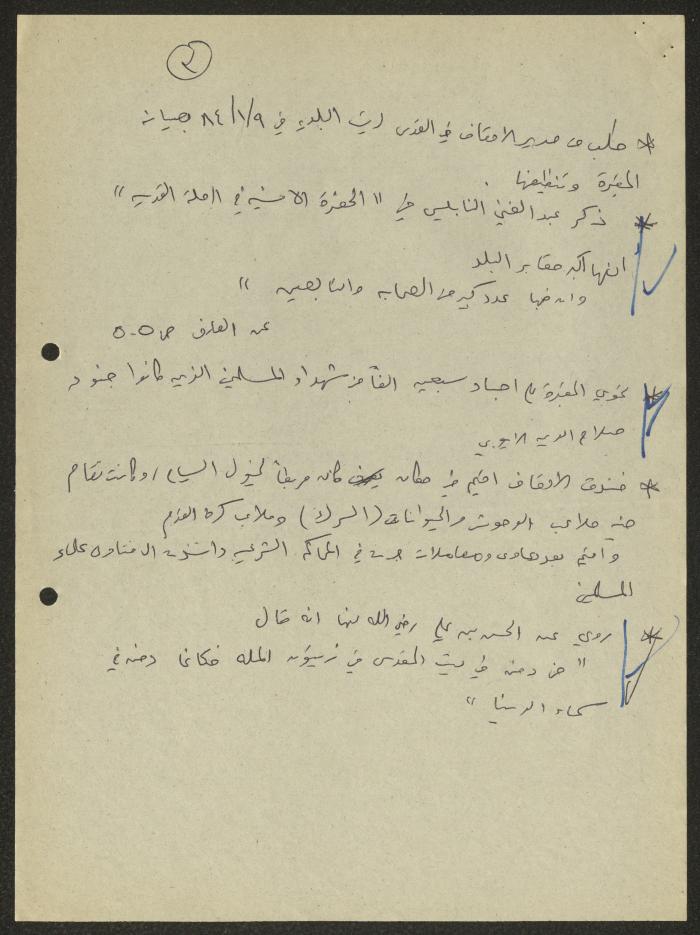 ٢
* طلب من مدير الاوقاف في القدس رئيس البلديه في ٨٤/١/٩ صيانة
المقبرة وتنظيفها .
* ذكر عبد الغني النابلسي في " الحضرة الانسية في الرحلة القدسيه "
انها اكبر مقابر البلد
وان فيها عدد كبير من الصحابه والتابعين "
عن العارف ص ٥٠٥
* تحوي المقبرة اجساد سبعين الفاً من شهداء المسلمين الذين كانوا جنود
صلاح الدين الايوبي
* فندق الاوقاف اقيم في مكان كان مربطاً لخيول السياح / وكانت تقام
فيه ملاعب الوحوش والحيوانات (السرك) وملاعب كرة القدم
واقيم بعدها دعاوى ومعاملات جرت في المحاكم الشرعيه واستندت الى فتاوى علماء
المسلمين
* روي عن الحسن بن علي رضي الله عنهما انه قال
" من دفن في بيت المقدس في زيتون المله فكانما دفن في
سماء الدنيا "